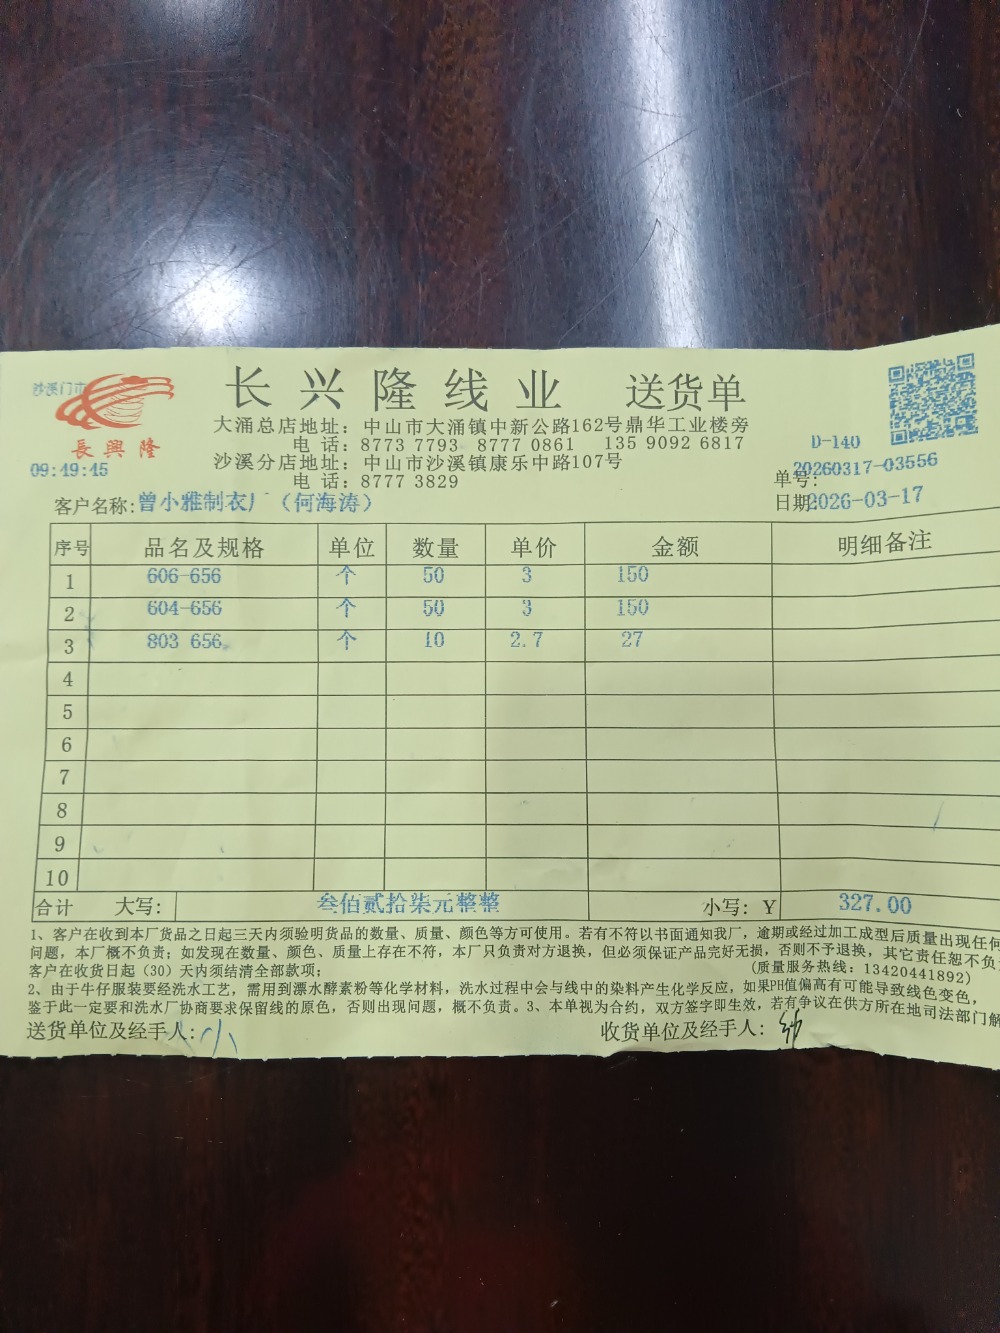 沙溪门市
長興隆
09:49:45
长兴隆线业 送货单
大涌总店地址：中山市大涌镇中新公路162号鼎华工业楼旁
电 话：8773 7793 8777 0861 135 9092 6817
沙溪分店地址：中山市沙溪镇康乐中路107号
电 话：8777 3829
D-140
单号：20260317-03556
客户名称：曾小雅制衣厂（何海涛）
日期：2026-03-17
序号 品名及规格 单位 数量 单价 金额 明细备注
1 606-656 个 50 3 150
2 604-656 个 50 3 150
3 803 656 个 10 2.7 27
4
5
6
7
8
9
10
合计 大写： 叁佰贰拾柒元整整 小写：Y 327.00
1、客户在收到本厂货品之日起三天内须验明货品的数量、质量、颜色等方可使用。若有不符以书面通知我厂，逾期或经过加工成型后质量出现任何
问题，本厂概不负责；如发现在数量、颜色、质量上存在不符，本厂只负责对方退换，但必须保证产品完好无损，否则不予退换，其它责任恕不负
客户在收货日起（30）天内须结清全部款项；
(质量服务热线：13420441892)
2、由于牛仔服装要经洗水工艺，需用到漂水酵素粉等化学材料，洗水过程中会与线中的染料产生化学反应，如果PH值偏高有可能导致线色变色，
鉴于此一定要和洗水厂协商要求保留线的原色，否则出现问题，概不负责。3、本单视为合约，双方签字即生效，若有争议在供方所在地司法部门解
送货单位及经手人： 小
收货单位及经手人：